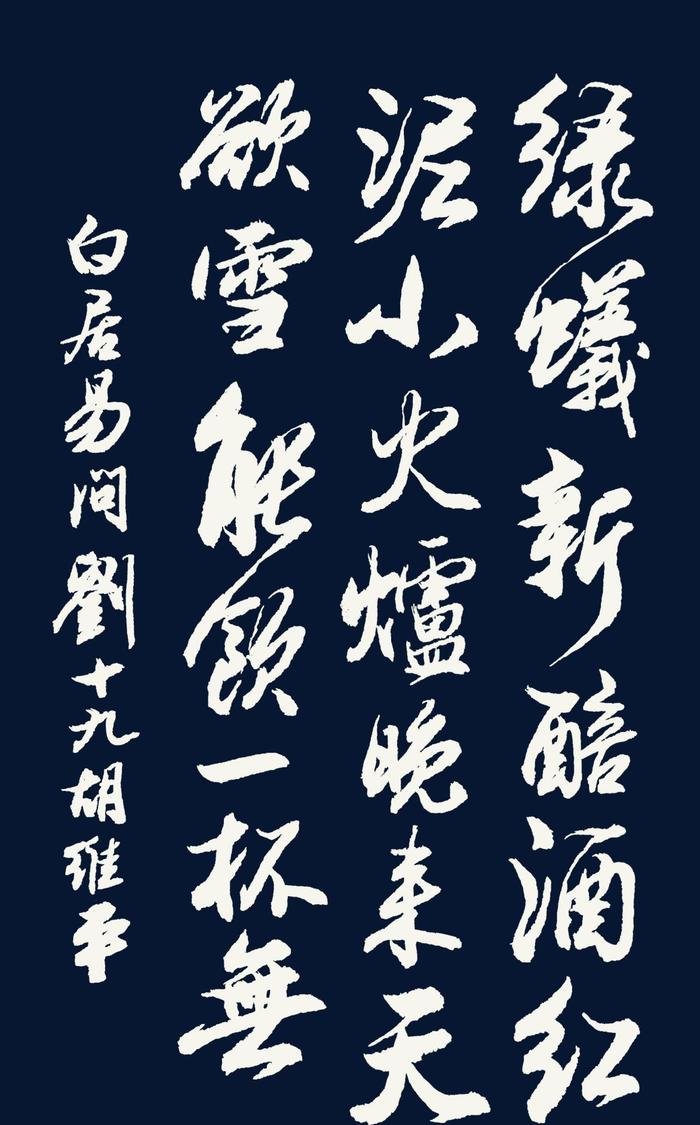 绿蟻新醅酒红
泥小火爐晚来天
欲雪能飲一杯無
白居易问劉十九胡維平